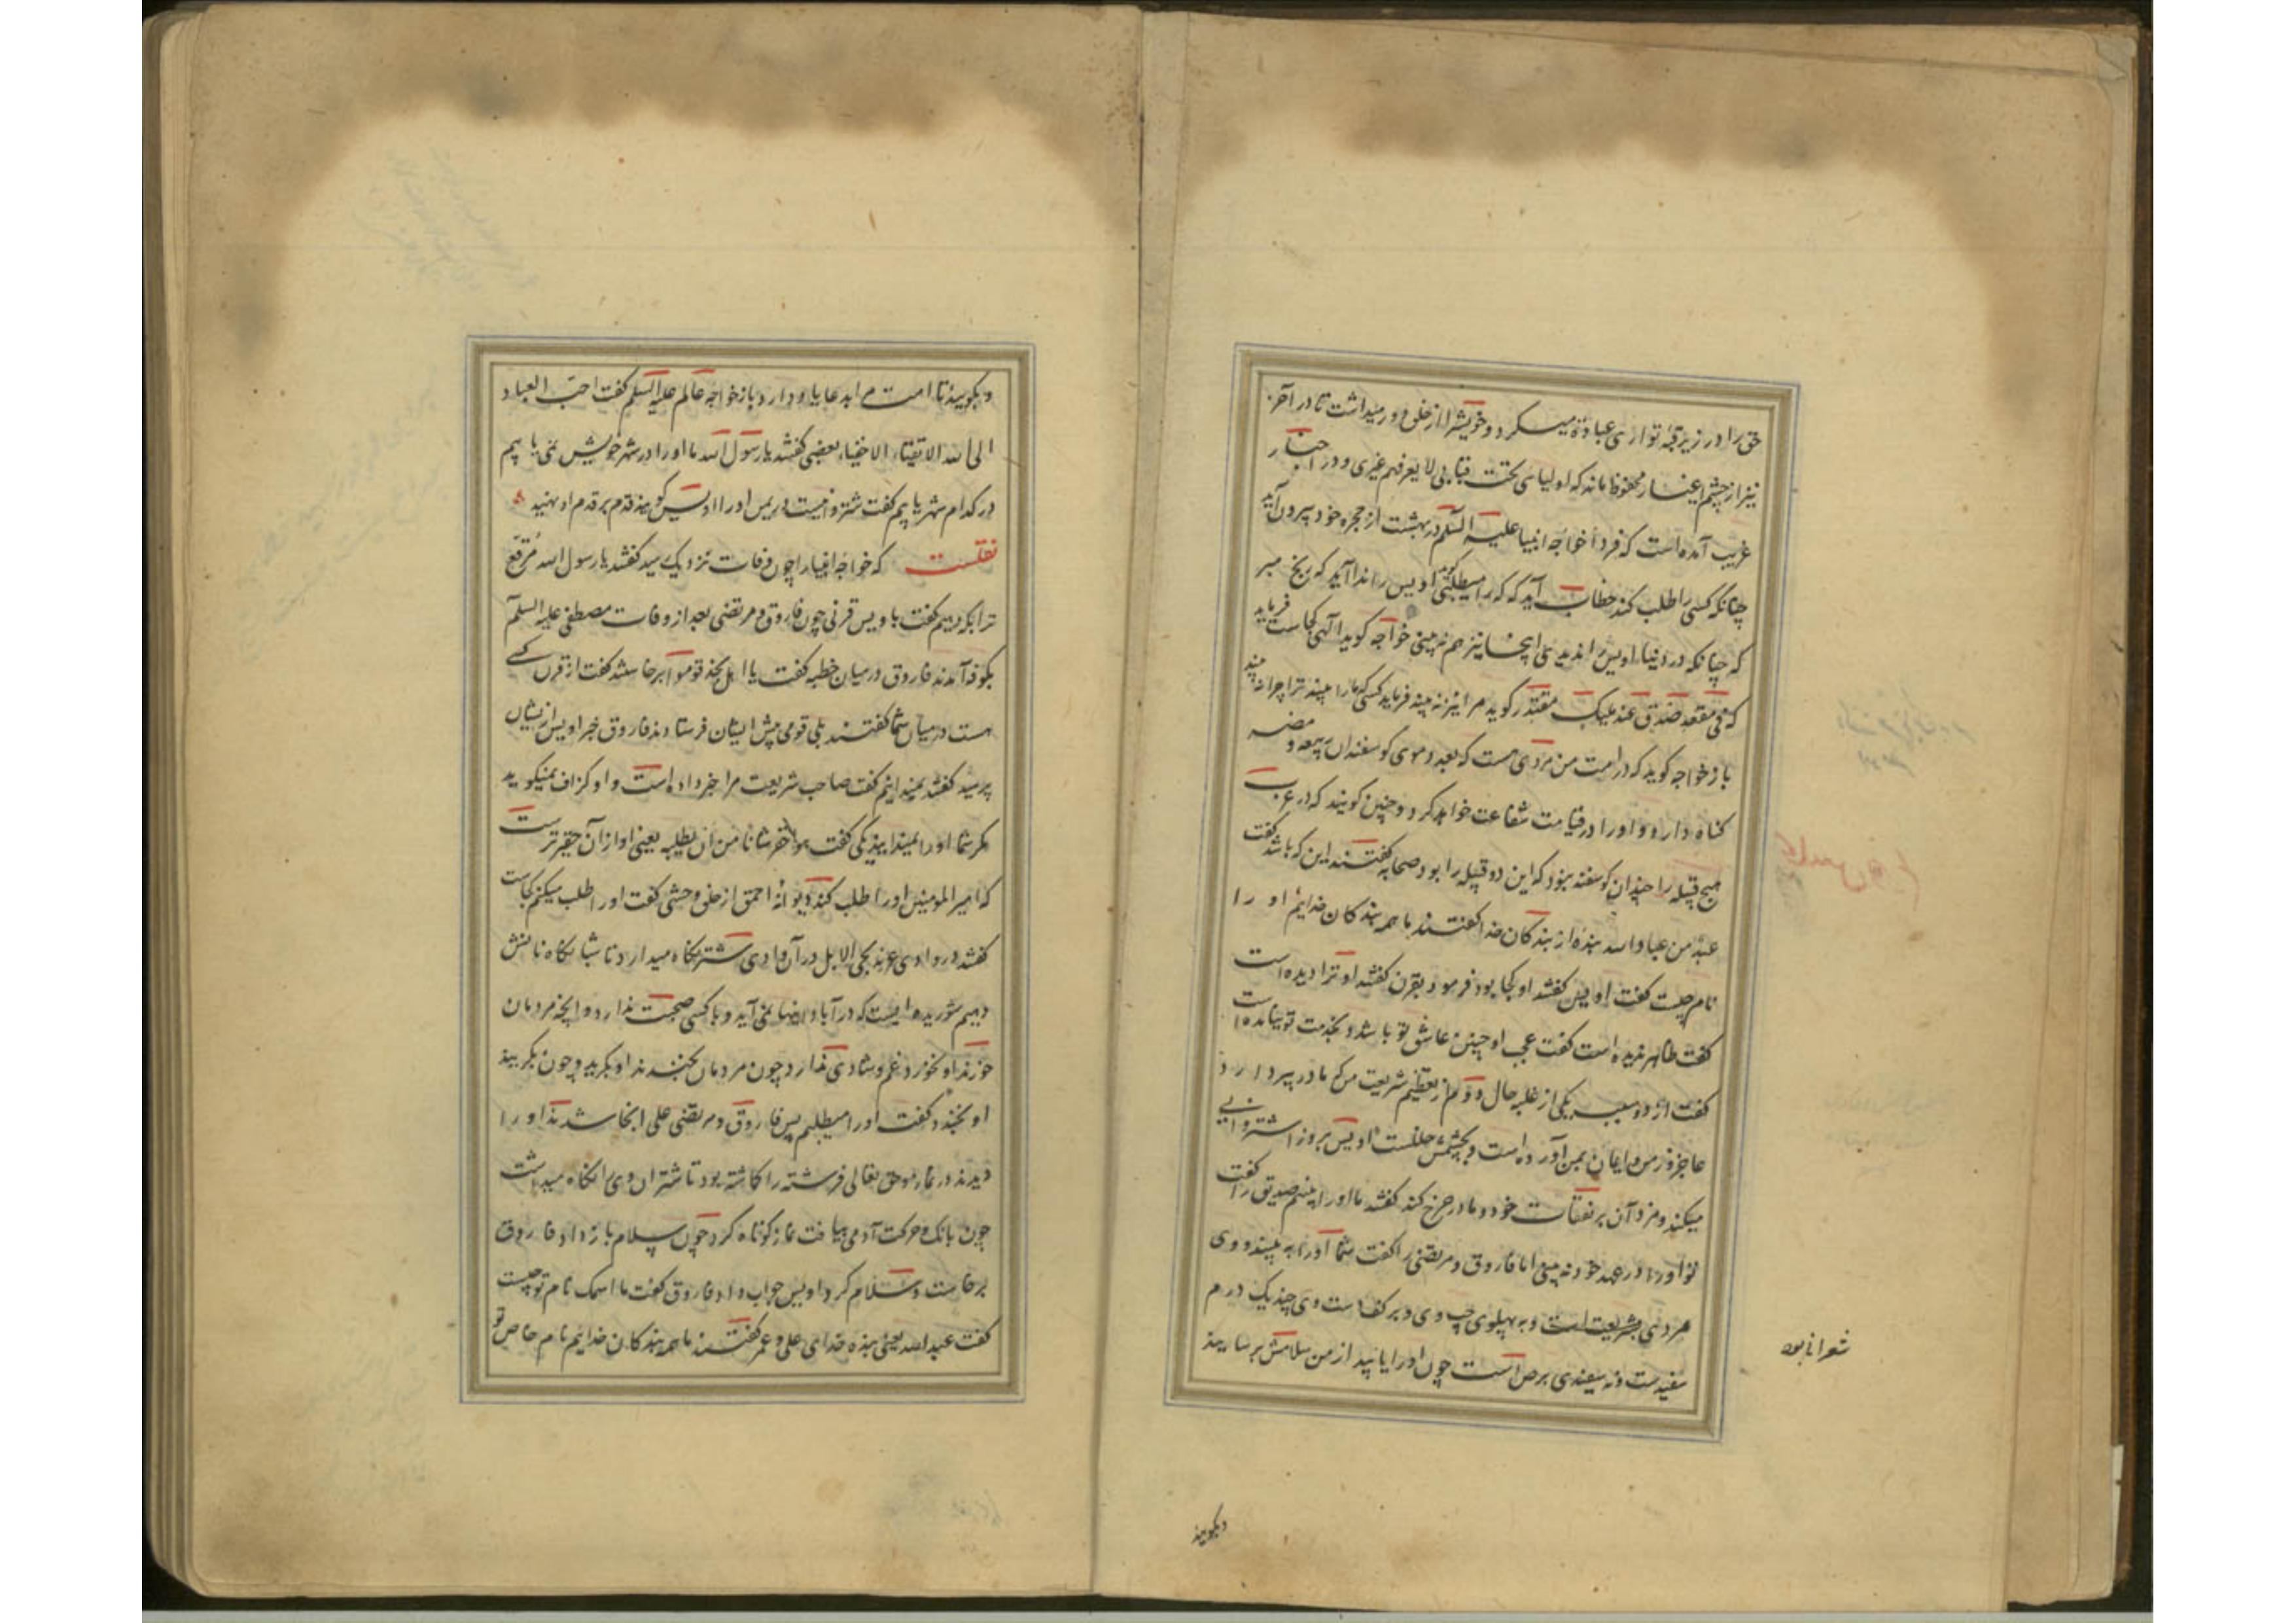 حق را در زیر قبه تواری عبادة میکرد و خویش را از خلق دور میداشت تا در آخر
نیز از چشم اغیار محفوظ ماند که اولیای تحت قبابی لا یعرفهم غیری و در اخبار
غریب آمده است که فردا خواجه انبیا علیه السلم در بهشت از حجره خود بیرون آید
چنانکه کسی را طلب کند خطاب آید که کرا میطلبی گوید اویس را ندا آید که رنج مبر
که چنانکه در دنیا اویس را ندیدی اینجا نیز هم نه بینی خواجه کوید الهی کجاست فرماید
که فی مقعد صدق عند ملیک مقتدر کوید مرا نیز نه بیند فرماید کسی که ما را بیند ترا چرا نه بیند
باز خواجه کوید که در امت من مردی هست که بعدد موی کوسفندان ربیعه و مضر
کناه دارد و او را در قیامت شفاعت خواهد کرد و چنین کویند که در عرب
هیچ قبیله را چندان کوسفند نبود که این دو قبیله را بود صحابه کفتند این که باشد کفت
عبد من عباد الله بنده از بندکان خدا کفتند ما همه بندکان خدایم او را
نام چیست کفت اویس کفتند او کجا بود فرمود بقرن کفتند او ترا دیده است
کفت ظاهر ندیده است کفت عجب او چنین عاشق تو باشد و بخدمت تو نیامده است
کفت از دو سبب یکی از غلبه حال دوم از تعظیم شریعت من که مادر پیر دارد
عاجز و ز من و ایمان بمن آورده است و بچشمش خلل است اویس بروز اشتروانی
میکند و مزد آن بر نفقات خود و مادر خرج کند کفتند ما او را بینیم صدیق را کفت
تو او را در عهد خود نه بینی اما فاروق و مرتضی را کفت شما او را به بینید و وی
مردی بشریعت است و به پهلوی چپ وی و بر کف دست وی چند یک درم
سفیدست و نه سفیدی برص است چون او را یابید از من سلامش برسانید
شعرانی بود
وبکویید
وبکویید تا امت مرا بدعا یاد دارد باز خواجه عالم علیه السلم کفت احب العباد
الی الله الاتقیاء الاخفیا بعضی کفتند یا رسول الله ما او را در شهر خویش نمی یابیم
در کدام شهر یابیم کفت شتروانیست در یمن او را اویس کویند قدم بر قدم او نهید
نقلست که خواجه انبیا را چون وفات نزدیک رسید کفتند یا رسول الله مرقع
ترا بکه دهیم کفت باویس قرنی چون فاروق و مرتضی بعد از وفات مصطفی علیه السلم
بکوفه آمدند فاروق در میان خطبه کفت یا اهل نجد قوموا برخاستند کفت از قرن کسی
هست در میان شما کفتند بلی قومی پیش ایشان فرستادند فاروق خبر اویس از ایشان
پرسید کفتند نمیدانیم کفت صاحب شریعت مرا خبر داده است و او کزاف نمیکوید
مکر شما او را نمیدانید یکی کفت هو احقر شانا من ان یطلبه یعنی او از آن حقیر ترست
که امیر المومنین او را طلب کند دیوانه احمق از خلق وحشی کفت او را طلب میکنم کجاست
کفتند در وادی عرنه یحمی الابل در آن وادی شتر نکاه میدارد تا شبانکاه نانش
دهیم شوریده ایست که در آبادانیها نمی آید و با کسی صحبت ندارد و انچه مردمان
خورند او نخورد غم و شادی نداند چون مردمان بخندند او بکرید و چون بکریند
او بخندد کفت او را میطلبم پس فاروق و مرتضی علی انجا شدند او را
دیدند در نماز و حق تعالی فرشته را کماشته بود تا شتران وی را نکاه میداشت
چون بانک و حرکت آدمی بیافت نماز کوتاه کرد چون سلام باز داد فاروق
برخاست و سلام کرد اویس جواب داد فاروق کفت ما اسمک نام تو چیست
کفت عبدالله یعنی بنده خدای علی و عمر کفتند ما همه بندکان خدایم نام خاص تو